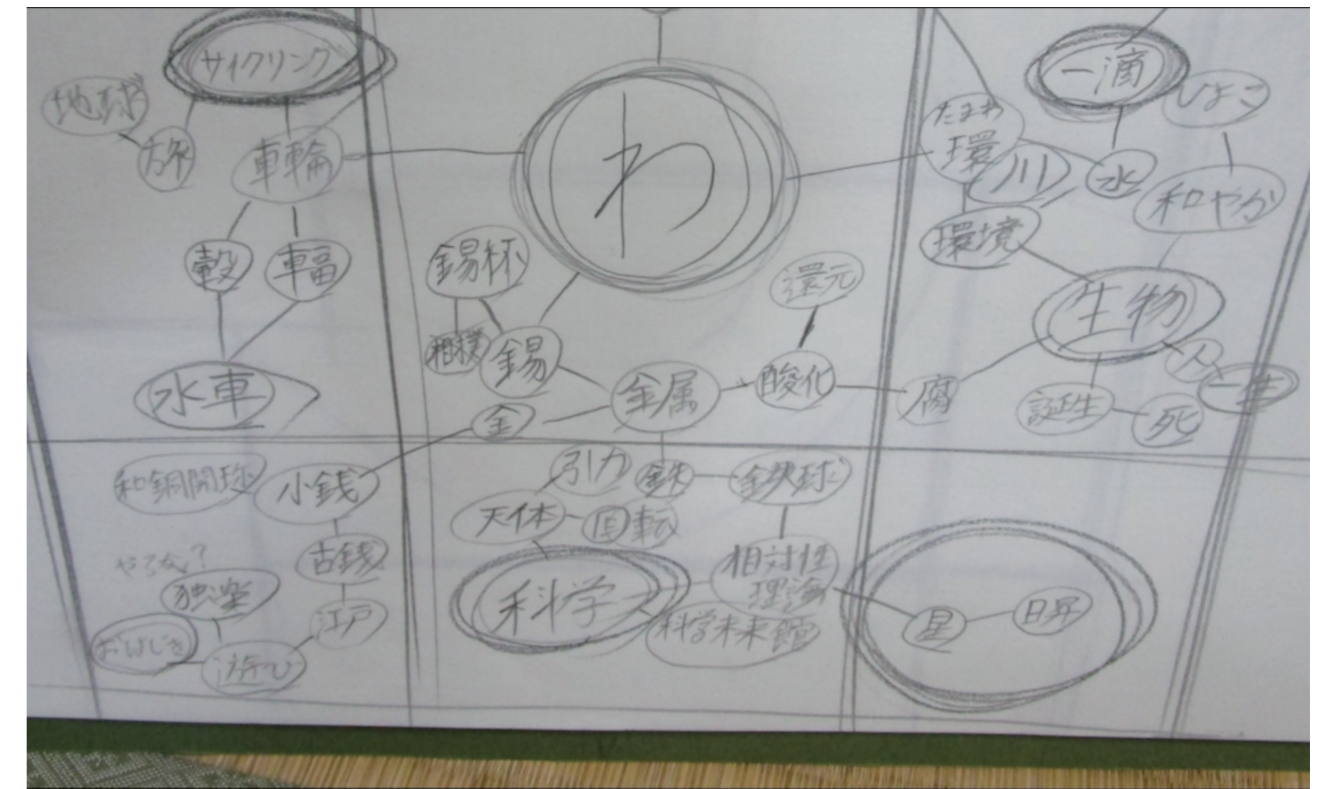 サイクリング
地球
旅
車輪
轂
輻
水車
わ
錫杯
相撲
錫
金属
金
還元
酸化
腐
一滴
ひよこ
たまわ
環
川
水
和やか
環境
生物
人
一生
誕生
死
和銅開珎
小銭
古銭
江戸
遊び
おはじき
独楽
引力
鉄
鉄球
天体
回転
科学
相対性
理論
科学未来館
星
日昇